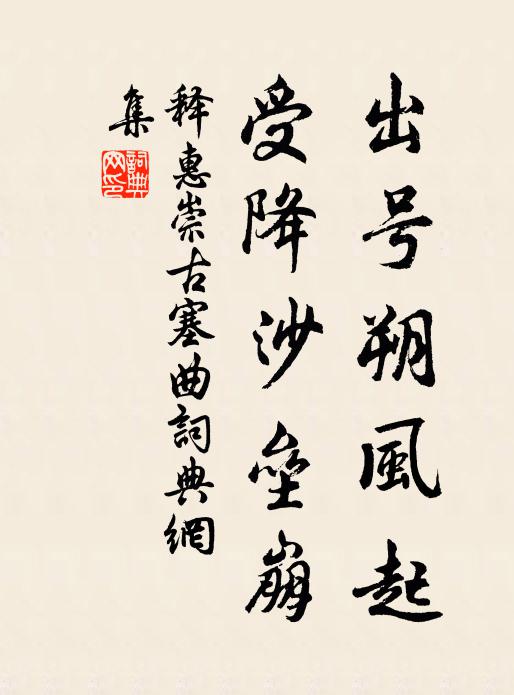 出号朔風起
受降沙壘崩
释惠崇古塞曲詞典網
集
詞典網印